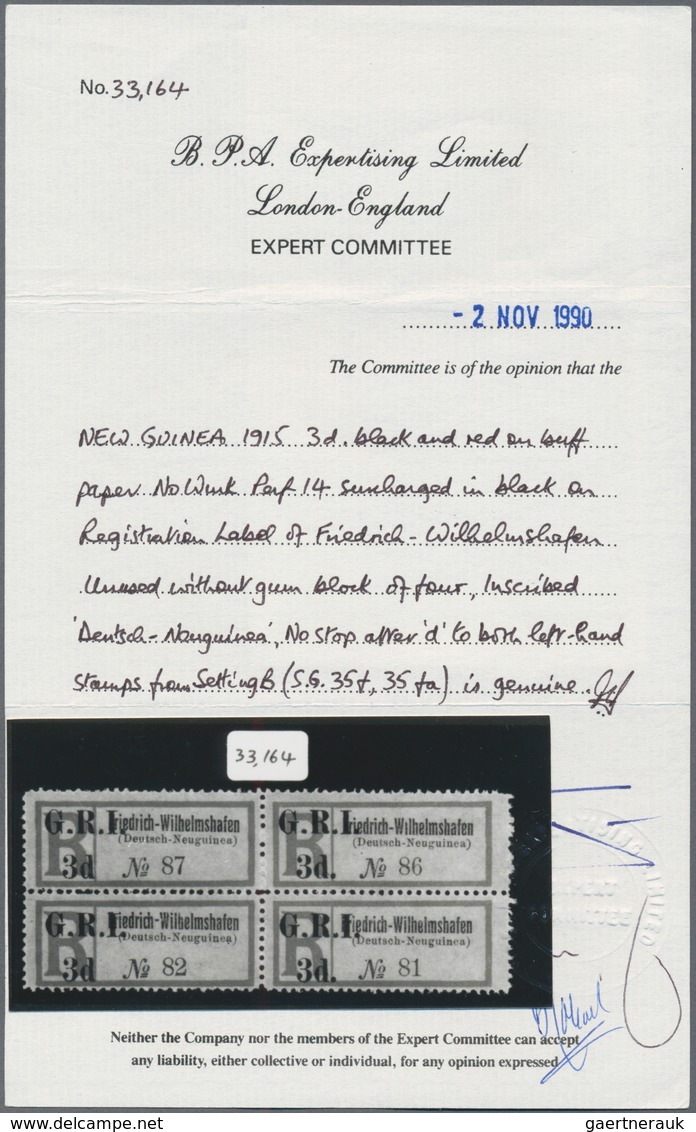 No. 33,164
B. P. A. Expertising Limited
London-England
EXPERT COMMITTEE
- 2 NOV 1990
The Committee is of the opinion that the
NEW GUINEA 1915 3d. black and red on buff
paper No Wmk Perf 14 surcharged in black on
Registration Label of Friedrich-Wilhelmshafen
Unused without gum block of four, Inscribed
'Deutsch-Neuguinea', No stop after 'd' to both left-hand
stamps from Setting B (S.G. 35f, 35fa) is genuine.
33,164
G.R.I. Friedrich-Wilhelmshafen G.R.I. Friedrich-Wilhelmshafen
(Deutsch-Neuguinea) (Deutsch-Neuguinea)
R 3d № 87 R 3d. № 86
G.R.I. Friedrich-Wilhelmshafen G.R.I. Friedrich-Wilhelmshafen
(Deutsch-Neuguinea) (Deutsch-Neuguinea)
R 3d № 82 R 3d. № 81
EXPERT
COMMITTEE
Neither the Company nor the members of the Expert Committee can accept
any liability, either collective or individual, for any opinion expressed
gaertnerauk @ delcampe.net